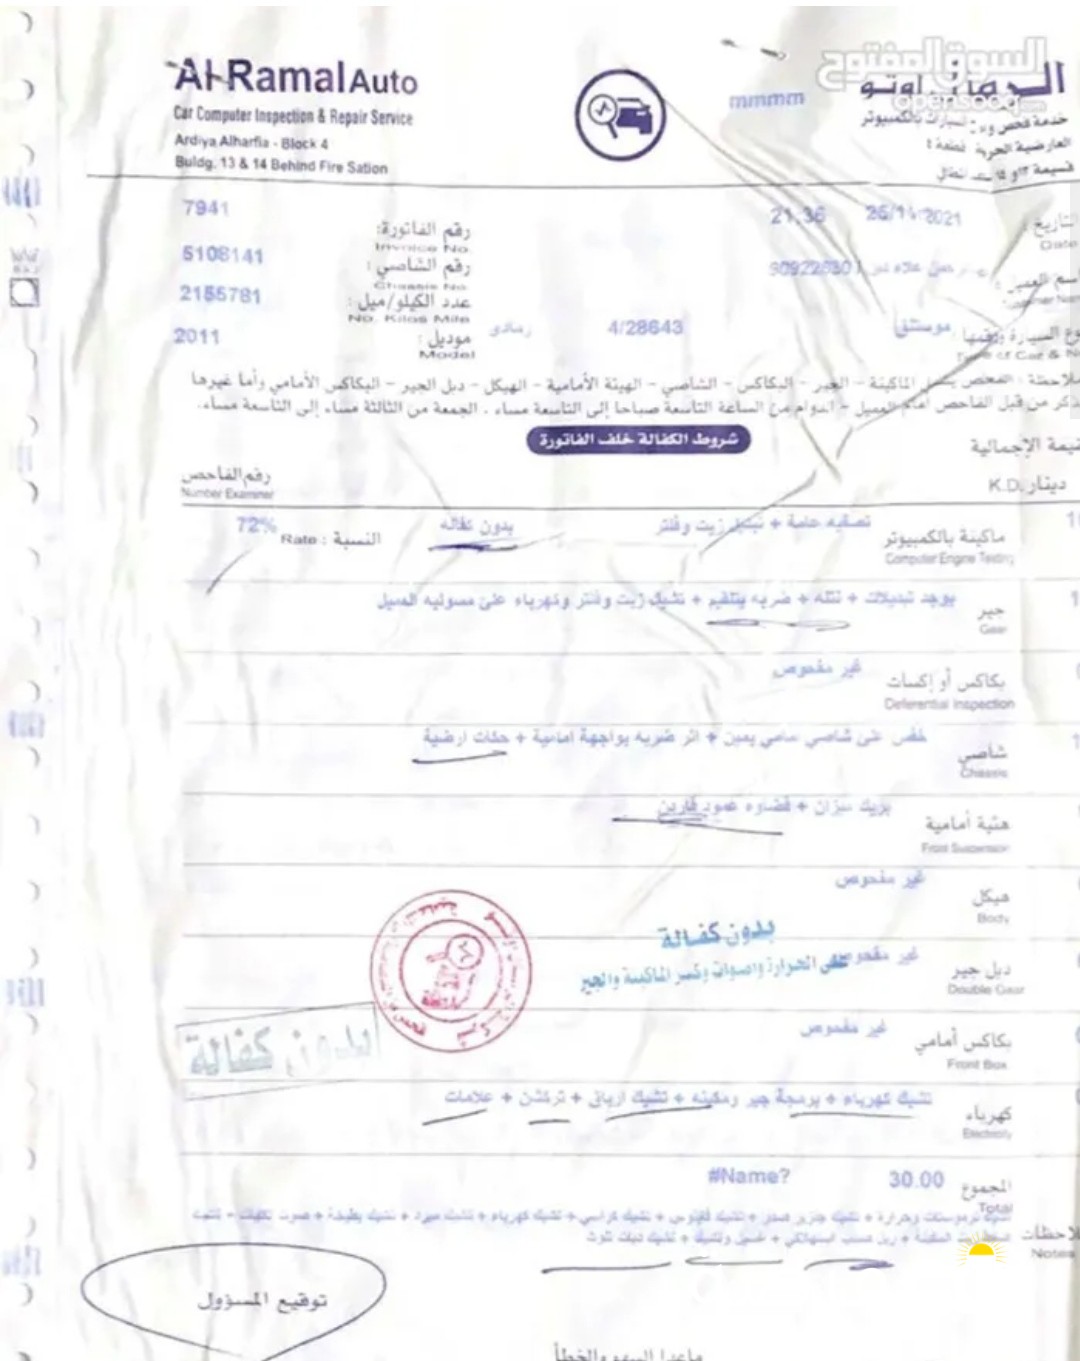 السوق المفتوح
opensooq
Al-Ramal Auto
Car Computer Inspection & Repair Service
Ardiya Alharfia - Block 4
Buldg. 13 & 14 Behind Fire Sation
mmmm
خدمة فحص السيارات بالكمبيوتر
7941
رقم الفاتورة:
Invoice No.
21:36
2021
التاريخ
Date
5108141
رقم الشاصي:
Chassis No.
2155781
عدد الكيلو/ميل:
No. Kilos Mile
2011
موديل:
Model
رمادي
4/28643
Type of Car & N
الماكينة - الجير - البكاكس - الشاصي - الهيئة الأمامية - الهيكل - دبل الجير - البكاكس الأمامي وأما غيرها
ذكر من قبل الفاحص أمام العميل - الدوام من الساعة التاسعة صباحا إلى التاسعة مساء . الجمعة من الثالثة مساء إلى التاسعة مساء.
شروط الكفالة خلف الفاتورة
قيمة الإجمالية
دينار K.D.
رقم الفاحص
Number Examiner
ماكينة بالكمبيوتر
Computer Engine Testing
تصفيه عامة + تبديل زيت وفلتر
بدون كفاله
النسبة : Rate
72%
جير
Gear
يوجد تبديلات + نتله + ضربه بتلقيم + تشيك زيت وفلتر وكهرباء على مسوليه العميل
بكاكس أو إكسات
Deferential Inspection
غير مفحوص
شاصي
Chassis
شاصي امامي يمين + اثر ضربه بواجهة امامية + حكات ارضية
هيئة أمامية
Front Suspension
عمود فاردن
هيكل
Body
غير مفحوص
بدون كفالة
على الحرارة واصوات وكسر الماكينة والجير
دبل جير
Double Gear
غير مفحوص
بكاكس أمامي
Front Box
غير مفحوص
بدون كفالة
كهرباء
Electricity
تشيك كهرباء + برمجة جير ومكينه + تشيك ارباق + تركشن + علامات
المجموع
Total
30.00
#Name?
لاحظات
Notes
توقيع المسؤول
ماعدا السهو والخطأ